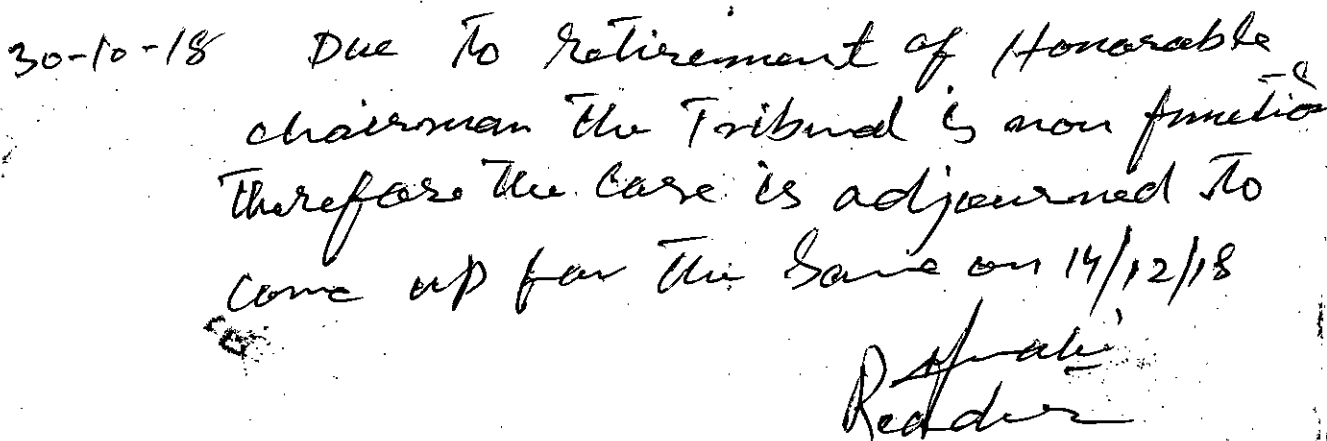 30-10-18 Due to retirement of Honorable
chairman the Tribunal is non functio
therefore the case is adjourned to
come up for the same on 14/12/18
Reader